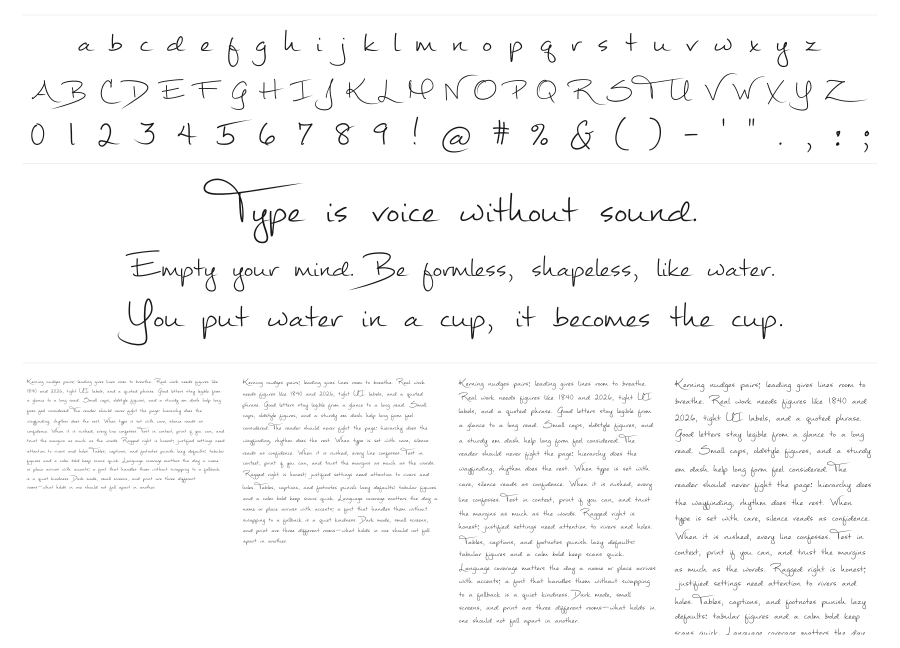 a b c d e f g h i j k l m n o p q r s t u v w x y z
A B C D E F G H I J K L M N O P Q R S T U V W X Y Z
0 1 2 3 4 5 6 7 8 9 ! @ # % & ( ) - ' " . , : ;
Type is voice without sound.
Empty your mind. Be formless, shapeless, like water.
You put water in a cup, it becomes the cup.
Kerning nudges pairs; leading gives lines room to breathe. Real work needs figures like
1840 and 2026, tight UI labels, and a quoted phrase. Good letters stay legible from
a glance to a long read. Small caps, oldstyle figures, and a sturdy em dash help long
form feel considered. The reader should never fight the page: hierarchy does the
wayfinding, rhythm does the rest. When type is set with care, silence reads as
confidence. When it is rushed, every line confesses. Test in context, print if you can, and
trust the margins as much as the words. Ragged right is honest; justified settings need
attention to rivers and holes. Tables, captions, and footnotes punish lazy defaults: tabular
figures and a calm bold keep scans quick. Language coverage matters the day a name
or place arrives with accents; a font that handles them without swapping to a fallback
is a quiet kindness. Dark mode, small screens, and print are three different
rooms—what holds in one should not fall apart in another.
Kerning nudges pairs; leading gives lines room to breathe. Real work
needs figures like 1840 and 2026, tight UI labels, and a quoted
phrase. Good letters stay legible from a glance to a long read. Small
caps, oldstyle figures, and a sturdy em dash help long form feel
considered. The reader should never fight the page: hierarchy does the
wayfinding, rhythm does the rest. When type is set with care, silence
reads as confidence. When it is rushed, every line confesses. Test in
context, print if you can, and trust the margins as much as the words.
Ragged right is honest; justified settings need attention to rivers and
holes. Tables, captions, and footnotes punish lazy defaults: tabular figures
and a calm bold keep scans quick. Language coverage matters the day a
name or place arrives with accents; a font that handles them without
swapping to a fallback is a quiet kindness. Dark mode, small screens,
and print are three different rooms—what holds in one should not fall
apart in another.
Kerning nudges pairs; leading gives lines room to breathe.
Real work needs figures like 1840 and 2026, tight UI
labels, and a quoted phrase. Good letters stay legible from
a glance to a long read. Small caps, oldstyle figures, and
a sturdy em dash help long form feel considered. The
reader should never fight the page: hierarchy does the
wayfinding, rhythm does the rest. When type is set with
care, silence reads as confidence. When it is rushed, every
line confesses. Test in context, print if you can, and trust
the margins as much as the words. Ragged right is
honest; justified settings need attention to rivers and holes.
Tables, captions, and footnotes punish lazy defaults:
tabular figures and a calm bold keep scans quick.
Language coverage matters the day a name or place arrives
with accents; a font that handles them without swapping
to a fallback is a quiet kindness. Dark mode, small
screens, and print are three different rooms—what holds in
one should not fall apart in another.
Kerning nudges pairs; leading gives lines room to
breathe. Real work needs figures like 1840 and
2026, tight UI labels, and a quoted phrase.
Good letters stay legible from a glance to a long
read. Small caps, oldstyle figures, and a sturdy
em dash help long form feel considered. The
reader should never fight the page: hierarchy does
the wayfinding, rhythm does the rest. When
type is set with care, silence reads as confidence.
When it is rushed, every line confesses. Test in
context, print if you can, and trust the margins
as much as the words. Ragged right is honest;
justified settings need attention to rivers and
holes. Tables, captions, and footnotes punish lazy
defaults: tabular figures and a calm bold keep
scans quick. Language coverage matters the day